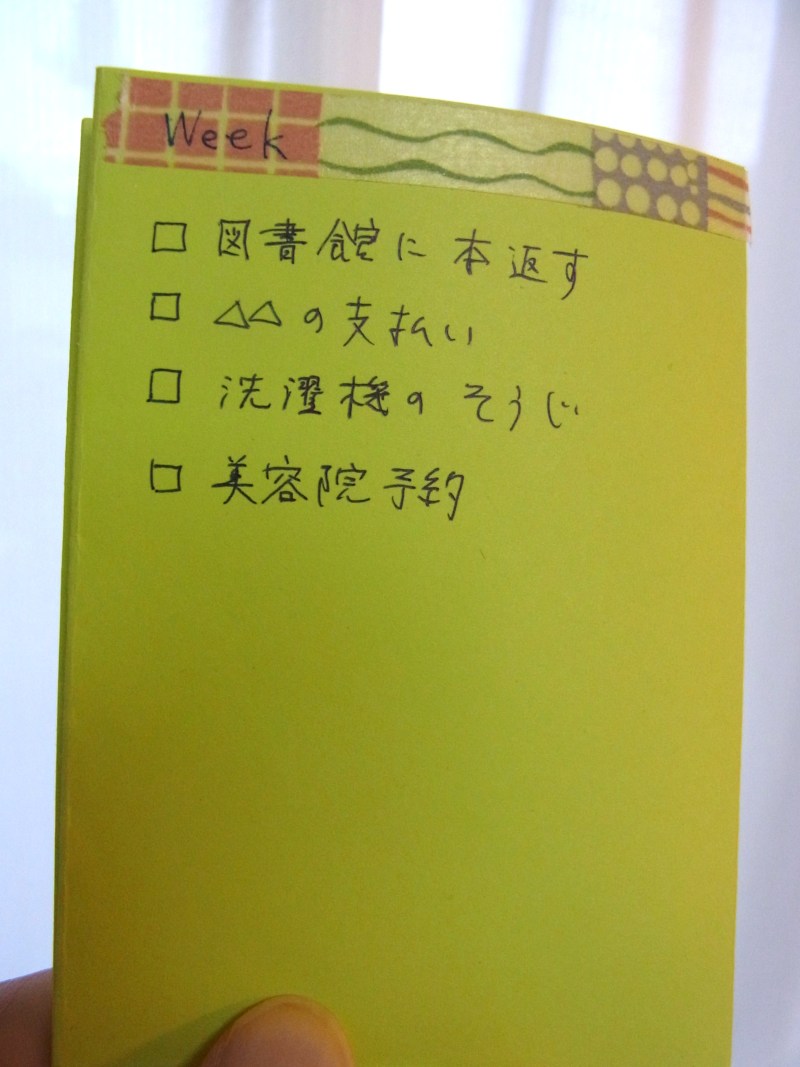 Week
□ 図書館に本返す
□ △△の支払い
□ 洗濯機のそうじ
□ 美容院予約